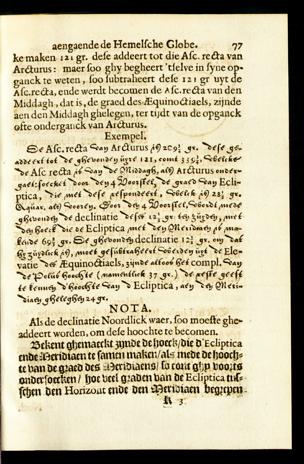 aengaende de Hemelsche Globe. 77
ke maken 121 gr. dese addeert tot die Asc. recta van
Arcturus: maer soo ghy begheert 'tselve in syne op-
ganck te weten, soo subtraheert dese 121 gr uyt de
Asc.recta, ende werdt becomen de Asc. recta van den
Middagh, dat is, de graed des Æquinoctiaels, zijnde
aen den Middagh ghelegen, ter tijdt van de opganck
ofte onderganck van Arcturus.
Exempel.
De Asc. recta van Arcturus is 209½ gr. dese ge-
addeert tot de ghevonden 121, comt
de Asc recta van de Middagh, als Arcturus onder-
gaet: soeckt door den 4 Voorstel, de graed van Ecli-
ptica, die met dese respondeert,
Door den 4 Voorstel, wordt mede
ghevonden de declinatie deser gr. ten zuyden, met
den hoeck die de Ecliptica met den Meridiaen
De ghevonden declinatie gr. om dat
hy zuydlick is, moet gesubtraheert werden uyt de Ele-
vatie des Æquinoctiaels, zijnde altoos het compl. van
de Polus hoochte (namentlick 37 gr.) de reste geeft
te kennen d'hoochte van de Ecliptica, aen den Meri-
diaen gheleghen 24 gr.
NOTA.
Als de declinatie Noordlick waer, soo moeste ghe-
addeert worden, om dese hoochte te becomen.
Bekent ghemaeckt zijnde de hoeck, die d'Ecliptica
ende Meridiaen te samen maken/ als mede de hooch-
te van de graed des Meridiaens/ so comt ghy voorts
ondersoecken/ hoe veel graden van de Ecliptica tus-
schen den Horizont ende den Meridiaen begrepen
K 3